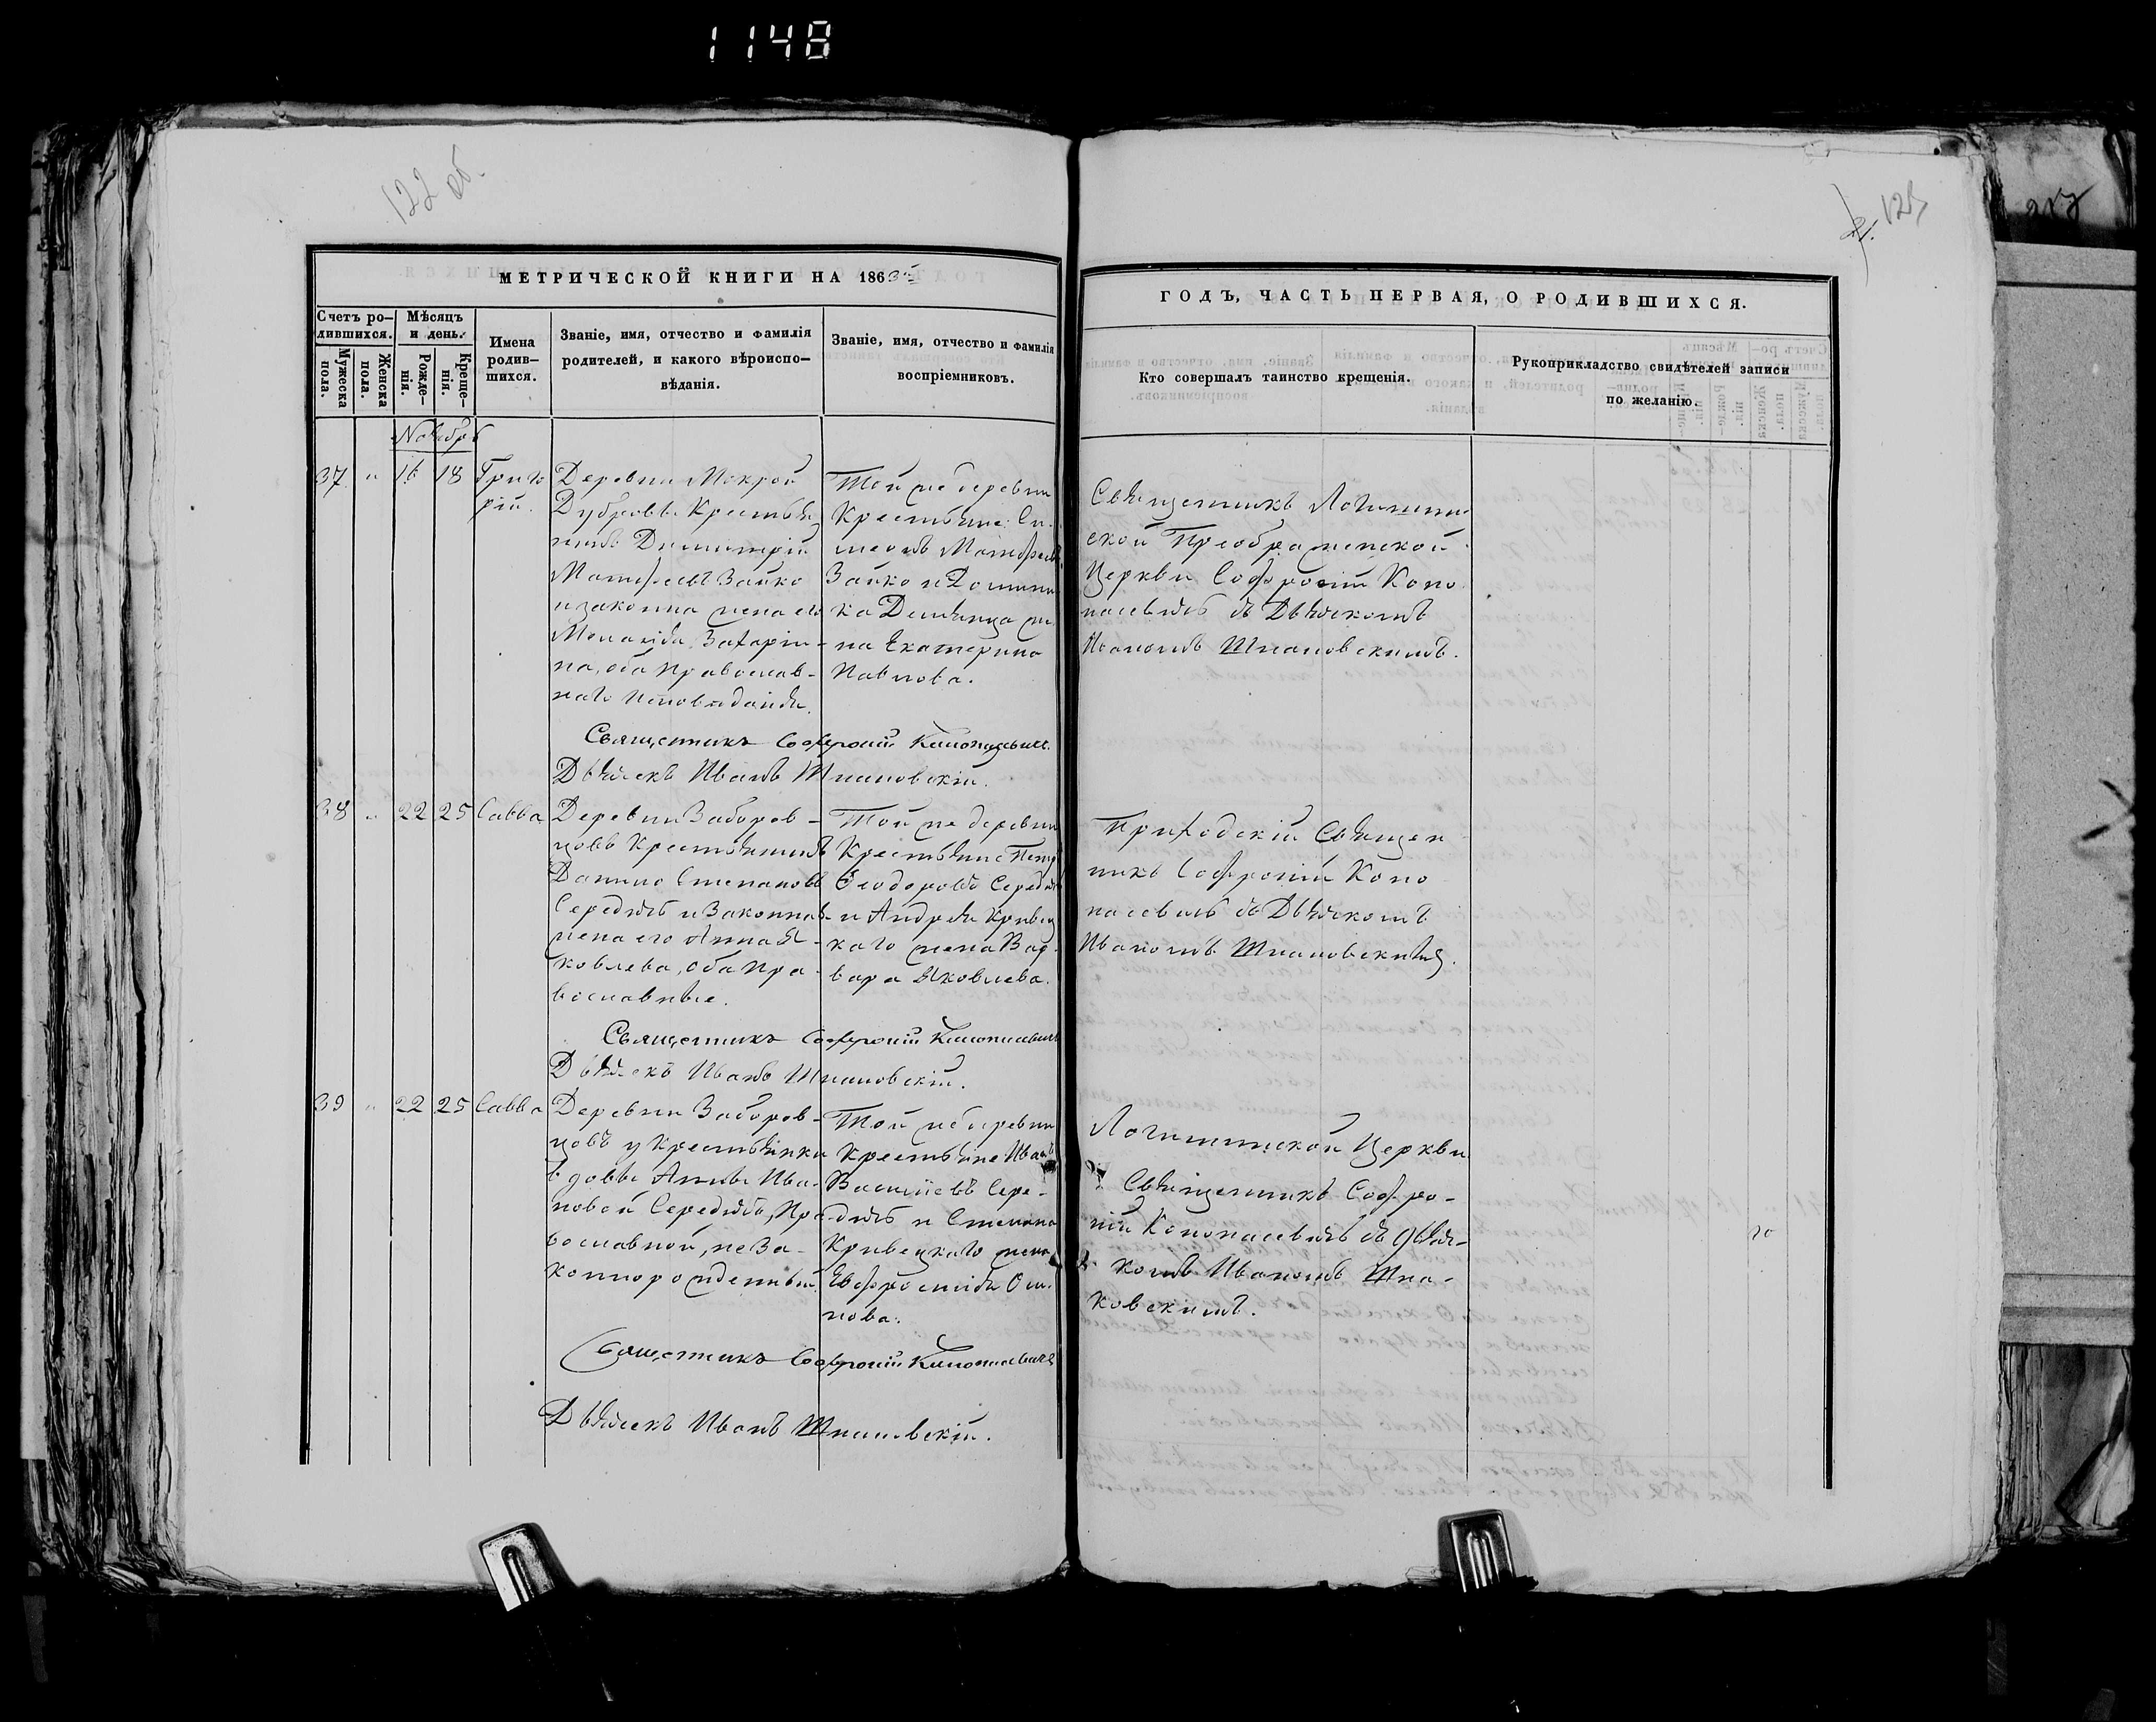 1148
122 об.
МЕТРИЧЕСКОЙ КНИГИ НА 186
Счетъ ро-
дившихся.
Мѣсяцъ
и день.
Мужеска
пола.
Женска
пола.
Рожде-
нія.
Креще-
нія.
Имена
родив-
шихся.
Званіе, имя, отчество и фамилія
родителей, и какого вѣроиспо-
вѣданія.
Званіе, имя, отчество и фамилія
воспріемниковъ.
Ноябрь
37 " 16 18
Григо
рій.
Деревни Мокрой
Дубровы Крестья
нинъ Димитрій
Матѳеевъ Зайко
и законна жена его
Меланія Захаріи-
на, оба православ-
наго исповѣданія.
Той же деревни
Крестьяне: Си-
меонъ Матѳеевъ
Зайко и Домини
ка Демянца же
на Екатерина
Павлова.
Священникъ Софроній Конопасевичъ.
Дьячекъ Иванъ Шпаковскій.
38 " 22 25 Савва
Деревни Заборов-
цовъ Крестьянинъ
Данило Степановъ
Середичъ и Законная
жена его Анна Я-
ковлева, оба пра-
вославные.
Той же деревни
Крестьяне Петръ
Ѳеодоровъ Середичъ
и Андрея Кривец
каго жена Вар-
вара Яковлева.
Священникъ Софроній Конопасевичъ
Дьячекъ Иванъ Шпаковскій.
39 " 22 25 Савва
Деревни Заборов-
цовъ у крестьянки
вдовы Анны Ива-
новой Середичъ, Пра-
вославной, неза-
коннорожденный.
Той же деревни
Крестьяне: Иванъ
Василіевъ Сере-
дичъ и Степана
Кривецкаго жена
Евфросинія Оси-
пова.
Священникъ Софроній Конопасевичъ
Дьячекъ Иванъ Шпаковскій.
ГОДЪ, ЧАСТЬ ПЕРВАЯ, О РОДИВШИХСЯ.
Кто совершалъ таинство крещенія.
Рукоприкладство свидѣтелей записи
по желанію.
Священникъ Логишин-
ской Преображенской
Церкви Софроній Коно
пасевичъ съ Дьячкомъ
Иваномъ Шпаковскимъ.
Приходскій Священ
никъ Софроній Коно
пасевичъ съ Дьячкомъ
Иваномъ Шпаковскимъ.
Логишинской Церкви
Священникъ Софро-
ній Конопасевичъ съ дьяч-
комъ Иваномъ Шпа-
ковскимъ.